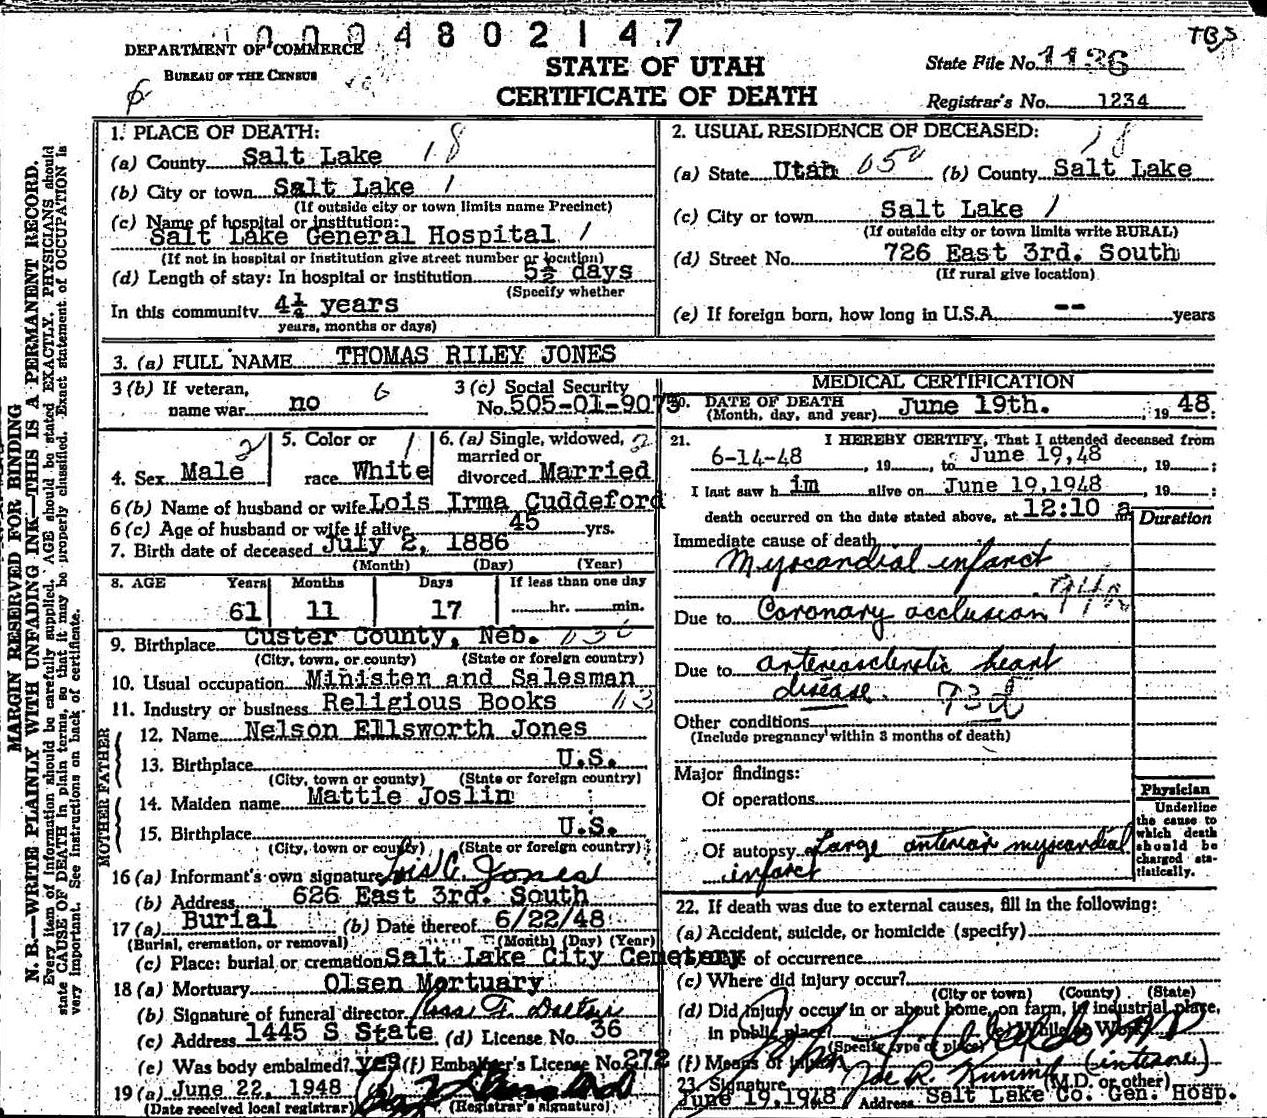 0004802147
TBS
DEPARTMENT OF COMMERCE
BUREAU OF THE CENSUS
STATE OF UTAH
CERTIFICATE OF DEATH
State File No. 1136
Registrar's No. 1234
MARGIN RESERVED FOR BINDING
N. B.—WRITE PLAINLY WITH UNFADING INK—THIS IS A PERMANENT RECORD.
Every item of information should be carefully supplied. AGE should be stated EXACTLY. PHYSICIANS should
state CAUSE OF DEATH in plain terms, so that it may be properly classified. Exact statement of OCCUPATION is
very important. See instructions on back of certificate.
1. PLACE OF DEATH:
(a) County Salt Lake 18
(b) City or town Salt Lake 1
(If outside city or town limits name Precinct)
(c) Name of hospital or institution:
Salt Lake General Hospital 1
(If not in hospital or institution give street number or location)
(d) Length of stay: In hospital or institution 5½ days
(Specify whether
In this community 4½ years
years, months or days)
2. USUAL RESIDENCE OF DECEASED:
18
(a) State Utah 050 (b) County Salt Lake
(c) City or town Salt Lake 1
(If outside city or town limits write RURAL)
(d) Street No. 726 East 3rd. South
(If rural give location)
(e) If foreign born, how long in U.S.A. -- years
3. (a) FULL NAME THOMAS RILEY JONES
3 (b) If veteran,
name war no 6
3 (c) Social Security
No. 505-01-9075
4. Sex Male 2
5. Color or
race White 1
6. (a) Single, widowed, 2
married or
divorced Married
6 (b) Name of husband or wife Lois Irma Cuddeford
6 (c) Age of husband or wife if alive 45 yrs.
7. Birth date of deceased July 2, 1886
(Month) (Day) (Year)
8. AGE Years Months Days If less than one day
61 11 17 hr. min.
9. Birthplace Custer County, Neb. 036
(City, town, or county) (State or foreign country)
10. Usual occupation Minister and Salesman
11. Industry or business Religious Books
FATHER
12. Name Nelson Ellsworth Jones
13. Birthplace U.S.
(City, town or county) (State or foreign country)
MOTHER
14. Maiden name Mattie Joslin
15. Birthplace U.S.
(City, town or county) (State or foreign country)
16 (a) Informant's own signature Lois C. Jones
(b) Address 626 East 3rd. South
17 (a) Burial (b) Date thereof 6/22/48
(Burial, cremation, or removal) (Month) (Day) (Year)
(c) Place: burial or cremation Salt Lake City Cemetery
18 (a) Mortuary Olsen Mortuary
(b) Signature of funeral director
(c) Address 1445 S State (d) License No. 36
(e) Was body embalmed? yes (f) Embalmer's License No. 272
19 (a) June 22, 1948
(Date received local registrar) (Registrar's signature)
MEDICAL CERTIFICATION
20. DATE OF DEATH
(Month, day, and year) June 19th. 19 48
21. I HEREBY CERTIFY, That I attended deceased from
6-14-48, 19 , to June 19,48, 19 ;
I last saw him alive on June 19,1948, 19 ;
death occurred on the date stated above, at 12:10 a m
Duration
Immediate cause of death
Myocardial infarct
94a
Due to Coronary occlusion
Due to arteriosclerotic heart
disease. 93d
Other conditions
(Include pregnancy within 3 months of death)
Major findings:
Of operations
Of autopsy Large anterior myocardial
infarct
Physician
Underline
the cause to
which death
should be
charged sta-
tistically.
22. If death was due to external causes, fill in the following:
(a) Accident, suicide, or homicide (specify)
of occurrence
(c) Where did injury occur?
(City or town) (County) (State)
(d) Did injury occur in or about home, on farm, in industrial place,
in public place? While at Work?
(Specify type of place)
(f) Means of injury (interne)
23. Signature Joe R. (M.D. or other)
June 19,1948 Address Salt Lake Co. Gen. Hosp.